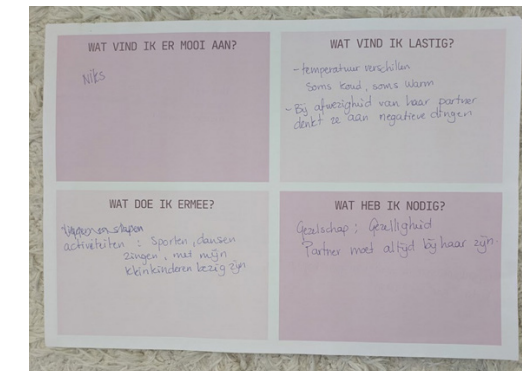 WAT VIND IK ER MOOI AAN?
Niks
WAT VIND IK LASTIG?
-temperatuur verschillen
Soms koud, soms warm
- Bij afwezigheid van haar partner
denkt ze aan negatieve dingen
WAT DOE IK ERMEE?
activiteiten : Sporten, dansen
zingen, met mijn
kleinkinderen bezig zijn
WAT HEB IK NODIG?
Gezelschap ; Gezelligheid
Partner moet altijd bij haar zijn.